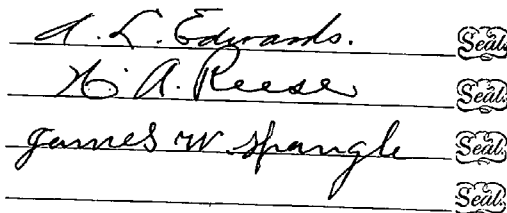 A. L. Edwards. Seal.
H. A. Reese Seal.
James W. Spangle Seal.
Seal.